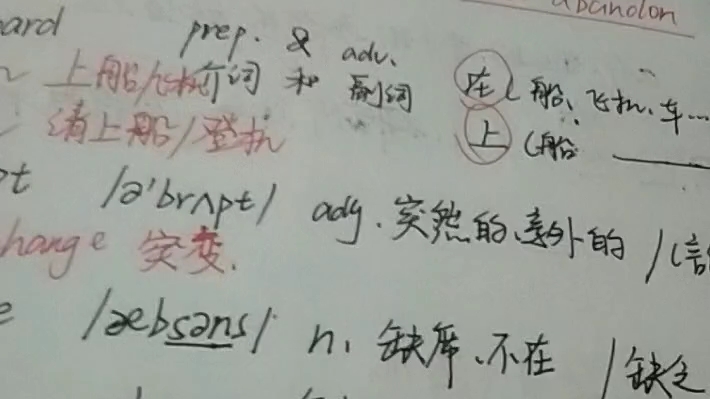 abandon
ard prep. & adv.
上船/飞机介词 和 副词 在(船、飞机、车...
请上船/登机 上(船
pt /ə'brʌpt/ adj. 突然的、意外的 /(言
hange 突变.
e /æbsəns/ n. 缺席、不在 /缺乏